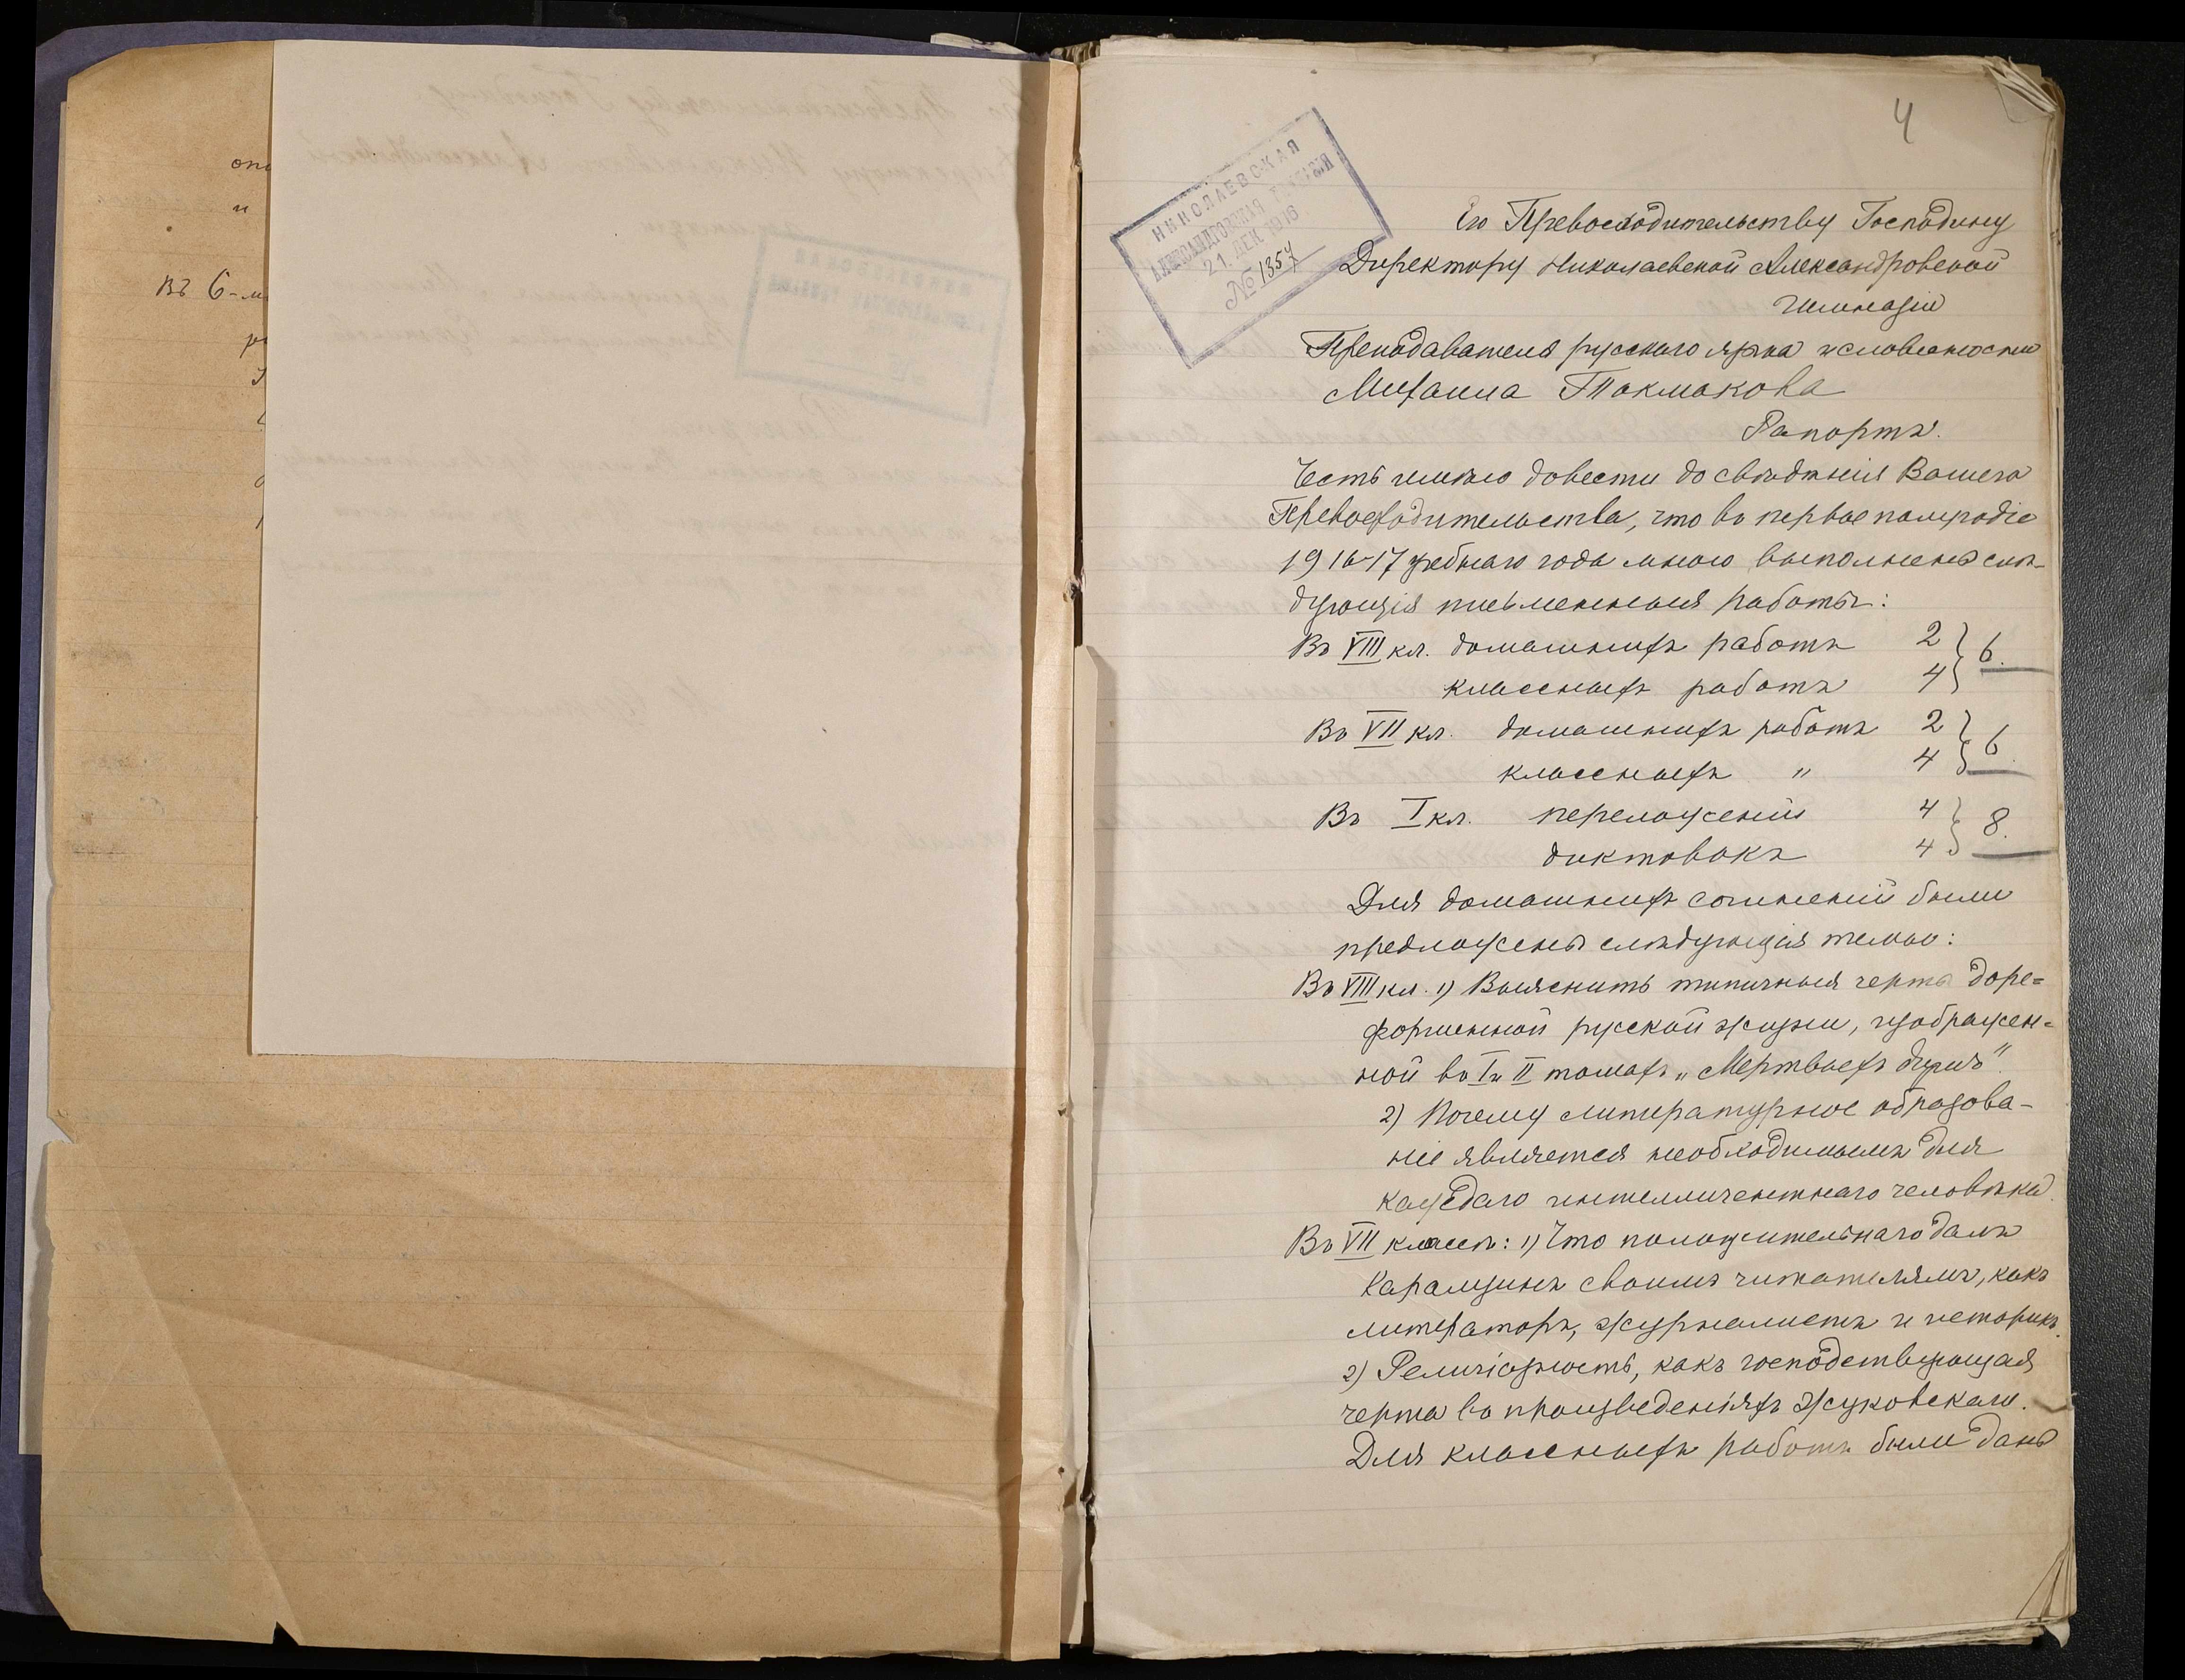 опи
и
въ 6-м
4
НИКОЛАЕВСКАЯ
АЛЕКСАНДРОВСКАЯ ГИМНАЗІЯ
21. ДЕК 1916
№ 1354
Его Превосходительству Господину
Директору Николаевской Александровской
Гимназіи
Преподавателя русскаго языка и словесности
Михаила Токмакова
Рапортъ.
Честь имѣю довести до свѣдѣнія Вашего
Превосходительства, что въ первое полугодіе
1916-17 учебнаго года мною выполнены слѣ-
дующія письменныя работы:
Въ VIII кл. домашнихъ работъ 2 } 6.
классныхъ работъ 4
Въ VII кл. домашнихъ работъ 2 } 6.
классныхъ " 4
Въ I кл. переложеній 4 } 8.
диктовокъ 4
Для домашнихъ сочиненій были
предложены слѣдующія темы:
Въ VIII кл. 1) Выяснить типичныя черты доре=
форменной русской жизни, изображен=
ной въ I и II томахъ „Мертвыхъ душъ".
2) Почему литературное образова-
ніе является необходимымъ для
каждаго интеллигентнаго человѣка.
Въ VII классѣ: 1) Что положительнаго далъ
Карамзинъ своимъ читателямъ, какъ
литераторъ, журналистъ и историкъ.
2) Религіозность, какъ господствующая
черта въ произведеніяхъ Жуковскаго.
Для классныхъ работъ были даны